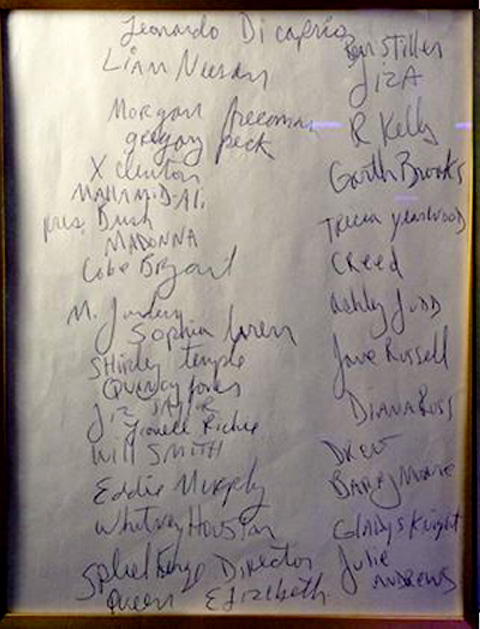 Leonardo Di caprio
Liam Neeson
Morgan freeman
gregory peck
X clinton
MAHAMiD ALi
Pres. Bush
MADONNA
Cobe Bryant
M. Jordan
Sophia loren
SHirley temple
Quancy Jones
Lionell Richie
Will SMITH
Eddie Murphy
Whitney Houston
Director
Queen Elizebeth
Ben Stiller
JiZA
R Kelly
Garth Brooks
Tricia yearwood
CReed
Ashley JuDD
Jane Russell
Diana Ross
DREW
BarryMore
Gladys Knight
Julie
ANDREWS